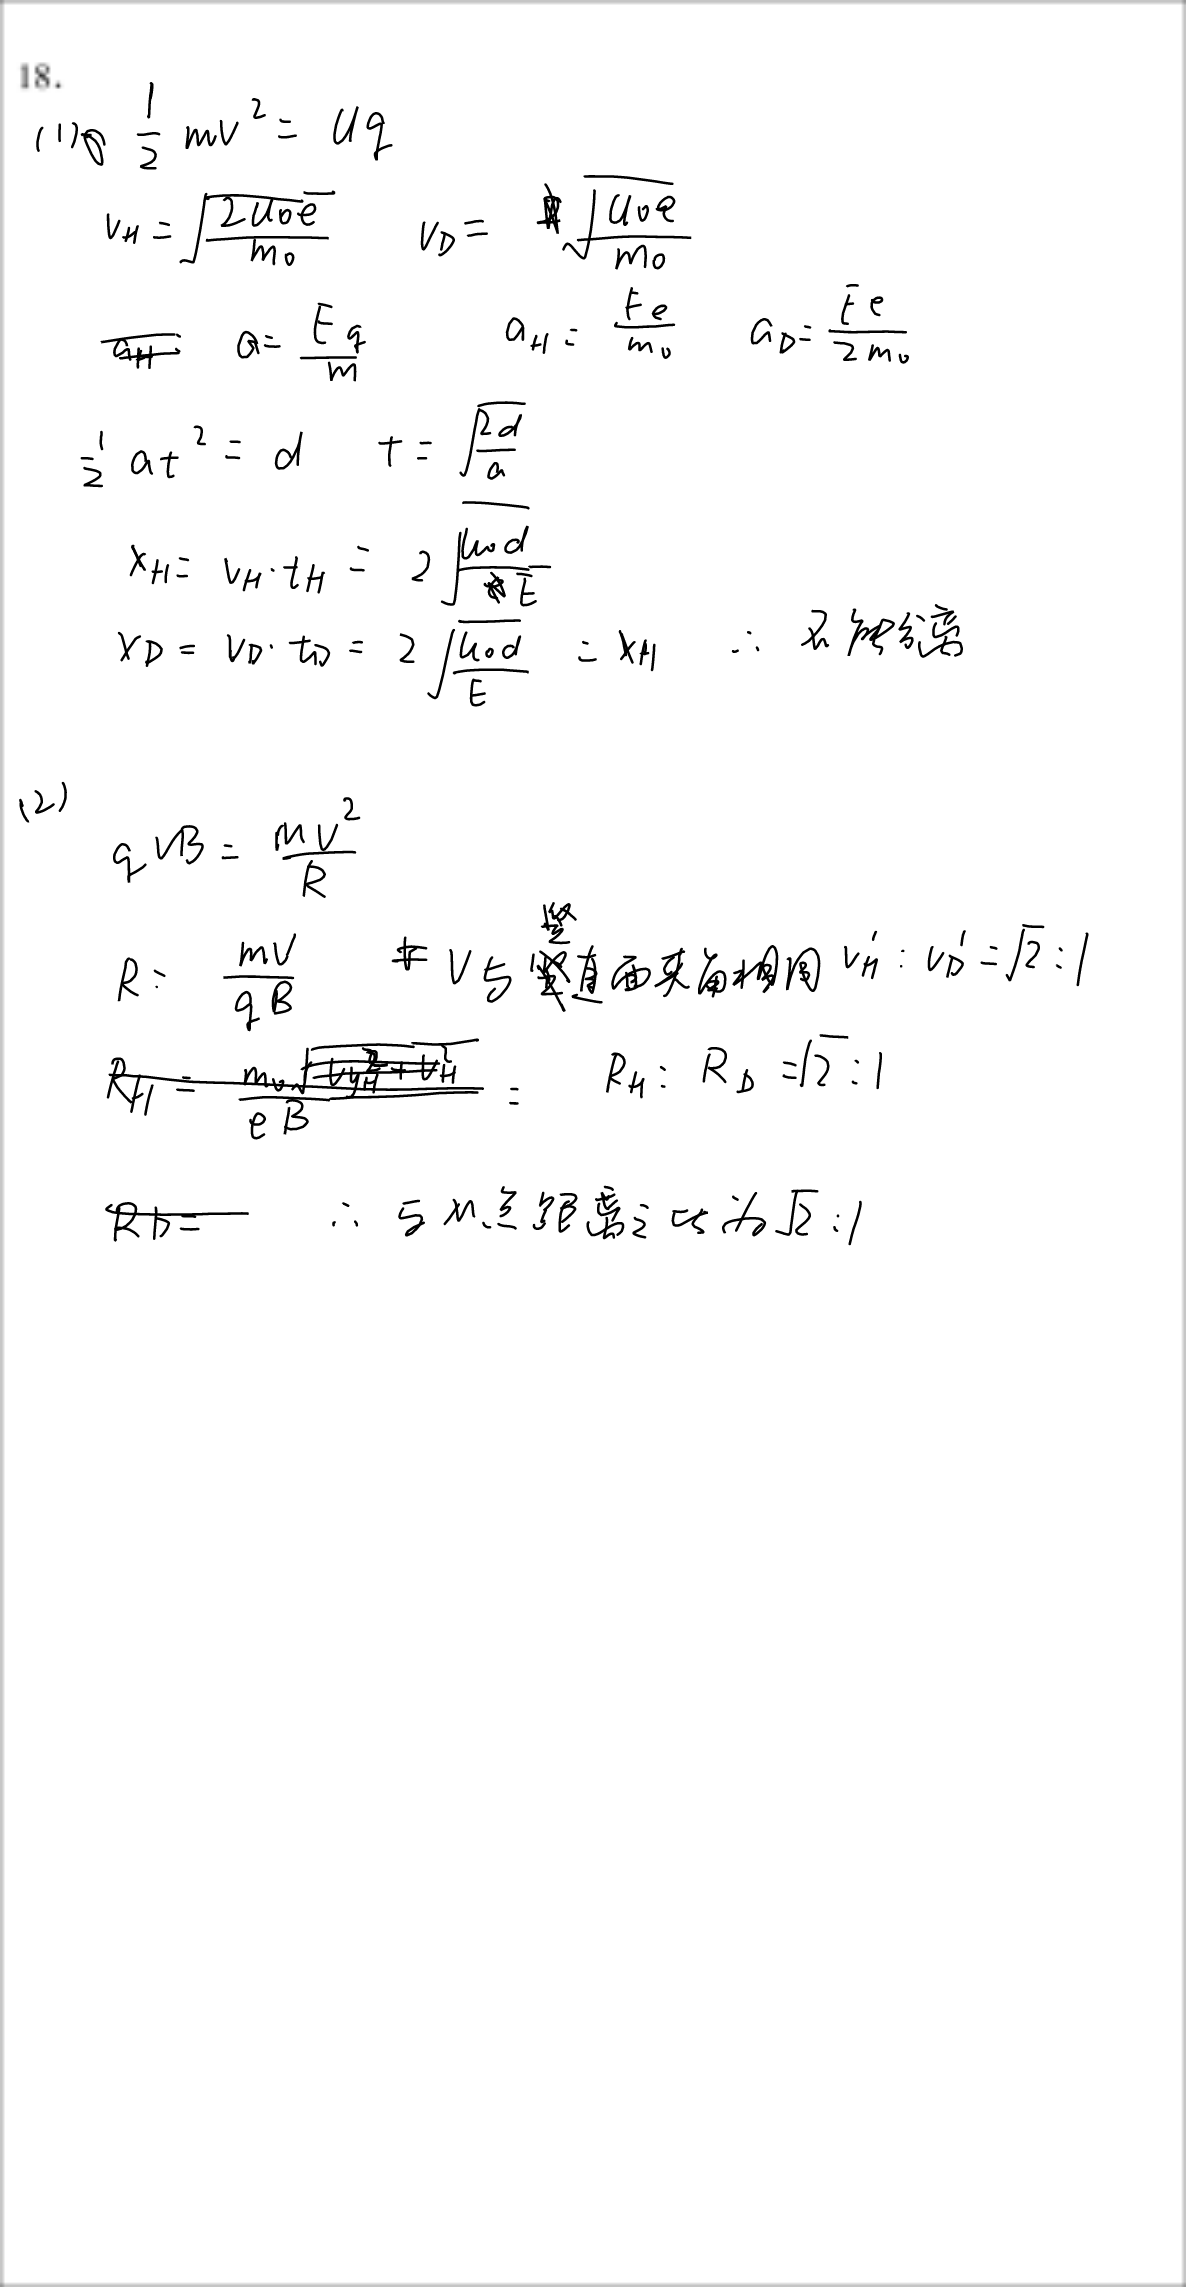 18.
(1) 1/2 mv² = Uq
v_H = √(2U₀e/m₀) v_D = √(U₀e/m₀)
a = Eq/m a_H = Ee/m₀ a_D = Ee/2m₀
1/2 at² = d t = √(2d/a)
x_H = v_H·t_H = 2√(U₀d/E)
x_D = v_D·t_D = 2√(U₀d/E) = x_H ∴ 不能分离
(2)
qvB = mv²/R
R = mv/qB V与竖直面夹角相同 v_H' : v_D' = √2 : 1
R_H : R_D = √2 : 1
∴ 与M点距离之比为√2 : 1